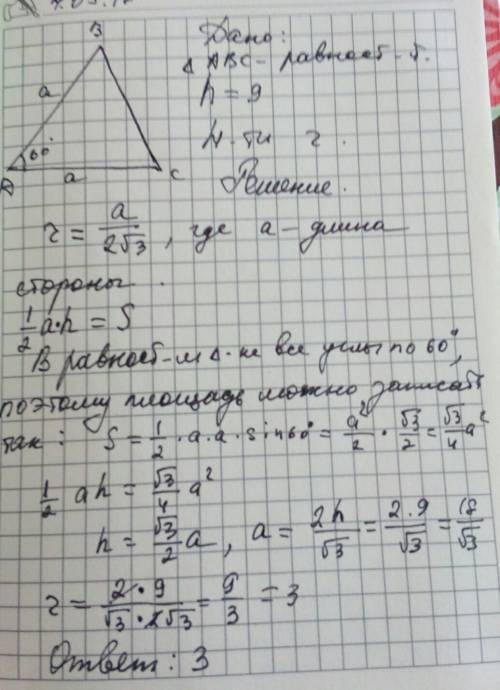 B
a
60°
A
a
C
Дано:
Δ ABC - равност-й.
h = 9
Н-ти r.
Решение.
r = a / 2√3, где a - длина
стороны.
1/2 a·h = S
В равност-м Δ-ке все углы по 60°,
поэтому площадь можно записать
так: S = 1/2 · a · a · sin60° = a²/2 · √3/2 = √3/4 a²
1/2 ah = √3/4 a²
h = √3/2 a, a = 2h/√3 = 2·9/√3 = 18/√3
r = 2·9 / √3·2√3 = 9/3 = 3
Ответ: 3